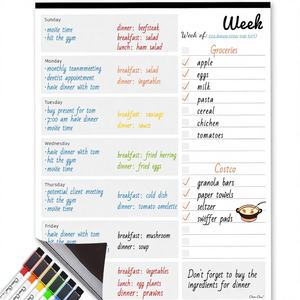 Week
Week of:
Sunday
· movie time
· hit the gym
dinner: beefsteak
breakfast: salad
lunch: ham salad
Monday
· monthly teammmeeting
· dentist appointment
· have dinner with tom
breakfast: salad
dinner: vegetables
Tuesday
· buy present for tom
· 7:00 am have dinner
· movie time
breakfast: sausage
dinner: sauce
Wednesday
· have dinner with tom
· hit the gym
· movie time
breakfast: fried herring
dinner: fried eggs
Thursday
· potential client meeting
· hit the gym
· movie time
breakfast: cold dish
dinner: tomato omelette
have dinner with tom
hit the gym
breakfast: mushroom
dinner: soup
breakfast: vegetables
lunch: egg plants
dinner: prawns
Groceries
apple
eggs
milk
pasta
cereal
chicken
tomatoes
Costco
granola bars
paper towels
seltzer
swiffer pads
Don't forget to buy the
ingredients for dinner